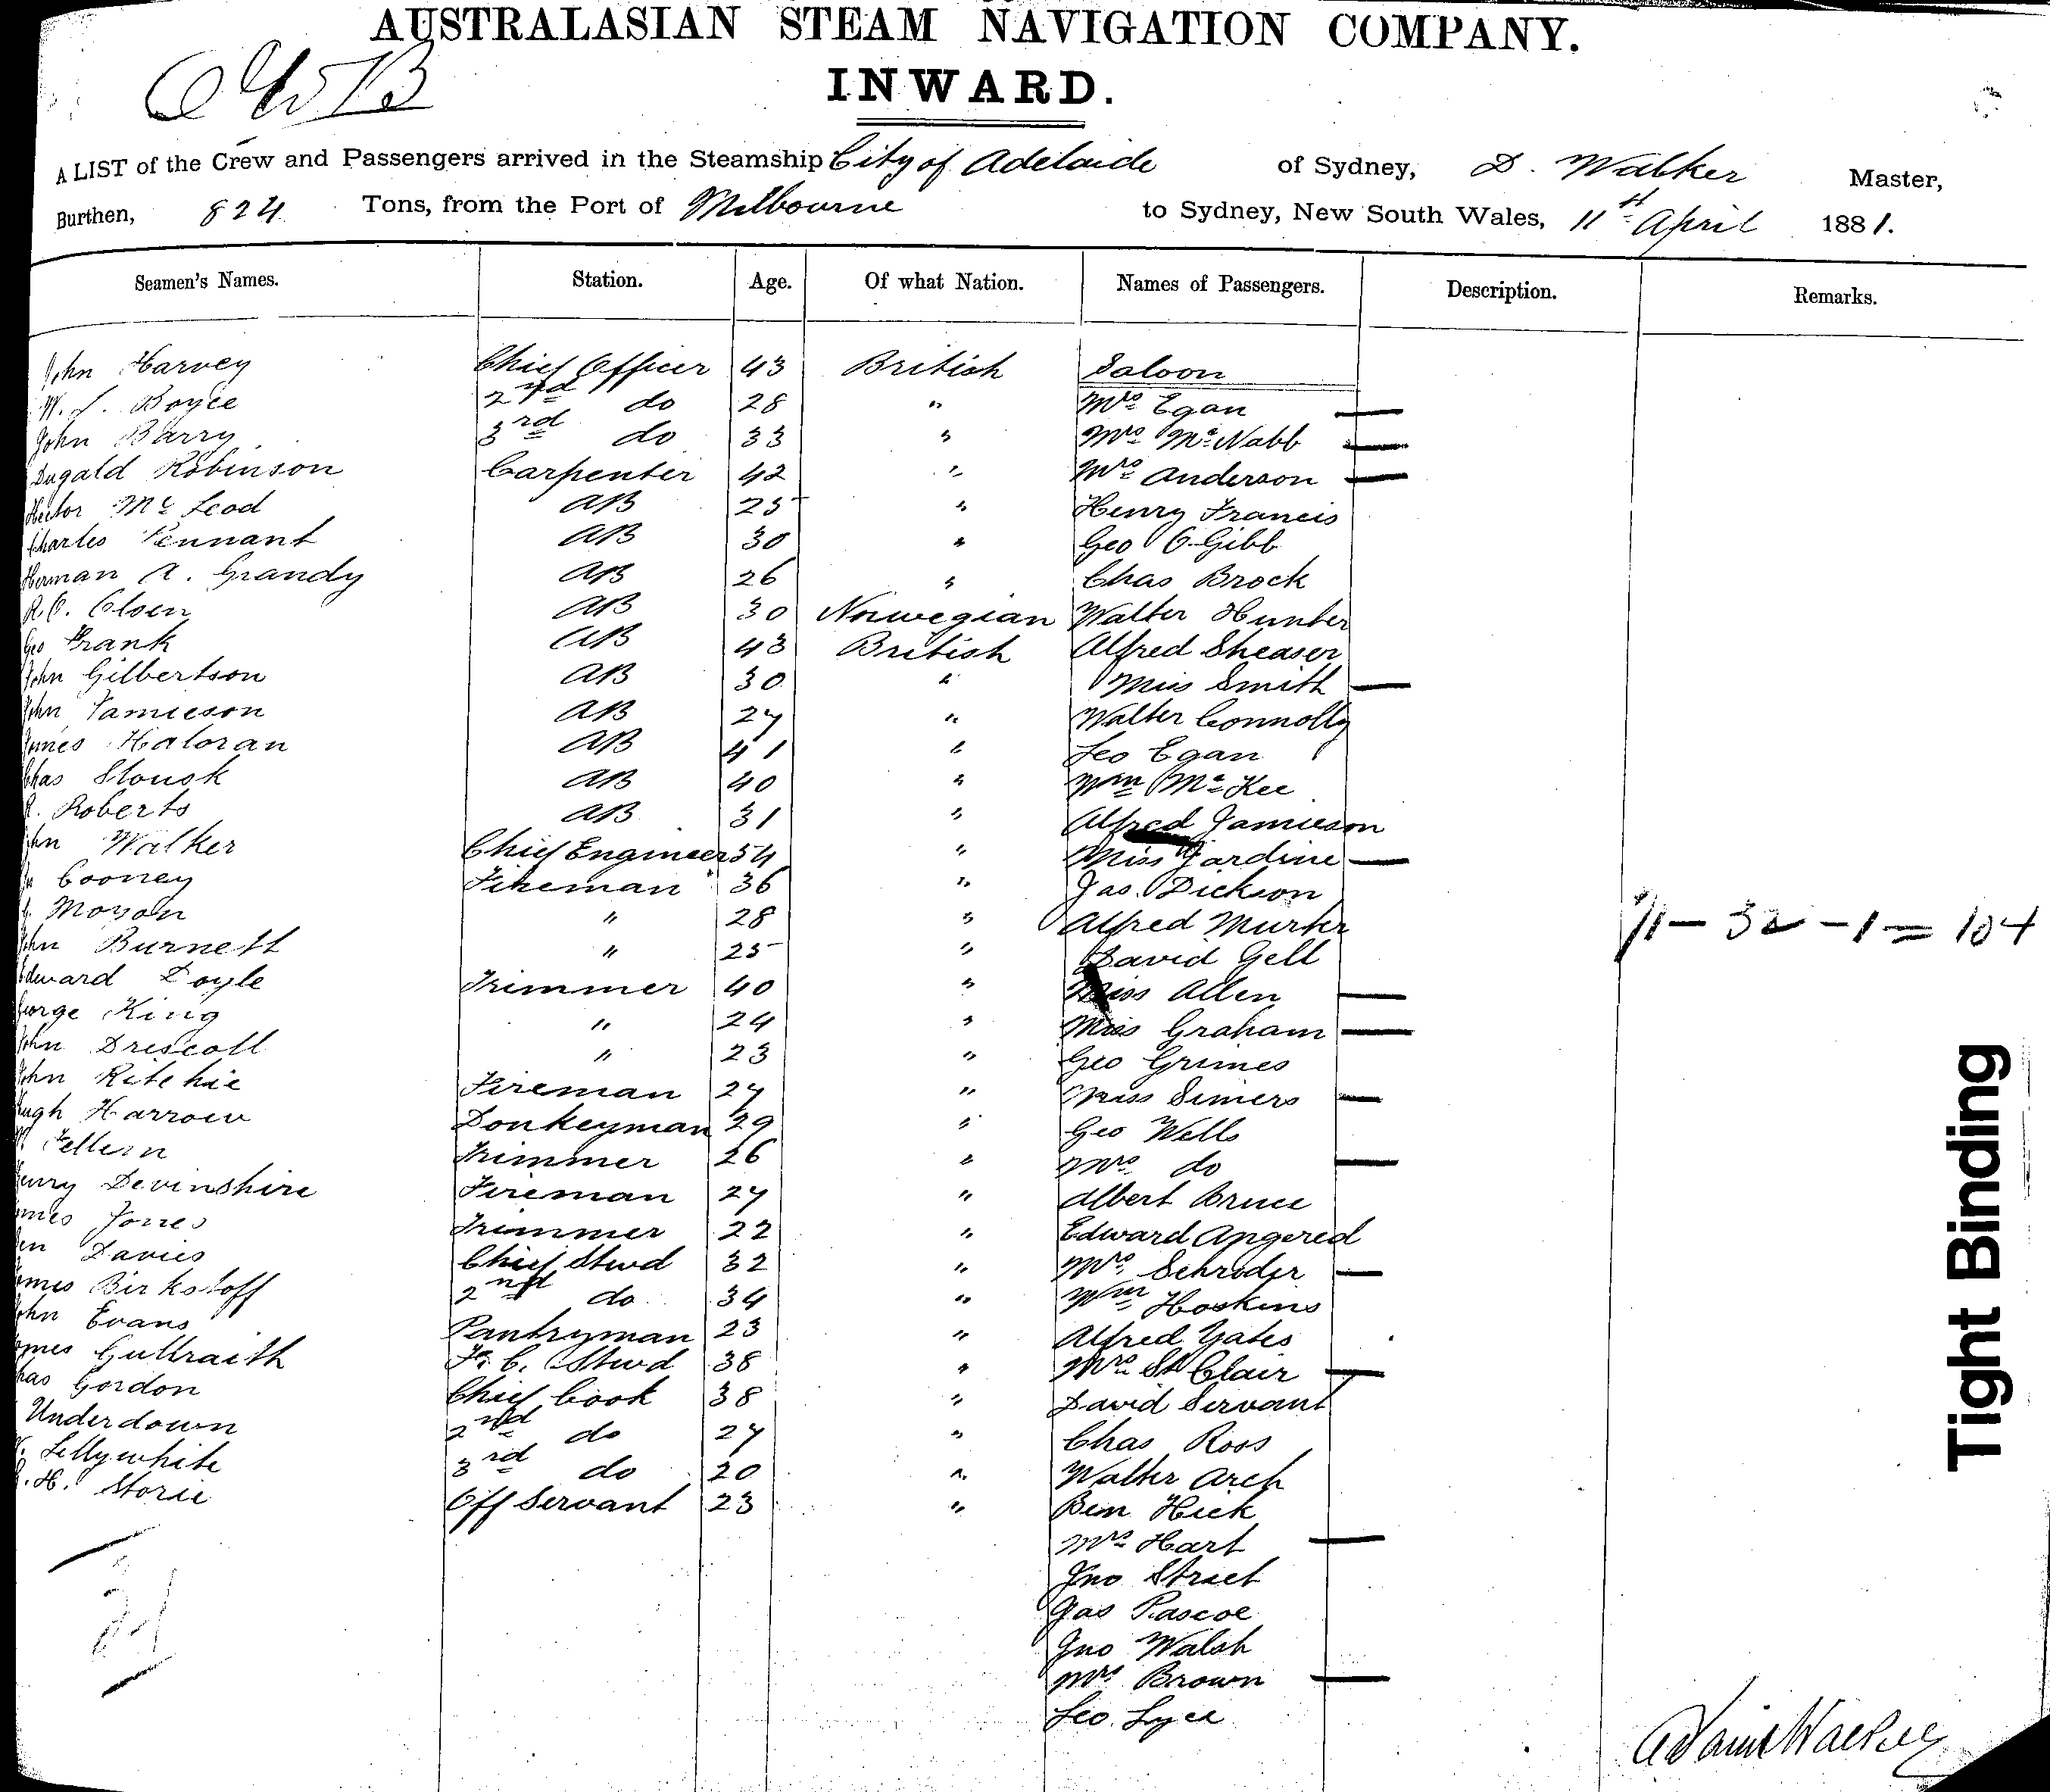 AUSTRALASIAN STEAM NAVIGATION COMPANY.
INWARD.
A LIST of the Crew and Passengers arrived in the Steamship City of Adelaide of Sydney, D. Walker Master,
Burthen, 824 Tons, from the Port of Melbourne to Sydney, New South Wales, 11th April 1881.
Seamen's Names. Station. Age. Of what Nation. Names of Passengers. Description. Remarks.
John Harvey Chief Officer 43 British Saloon
W. J. Boyce 2nd do 28 " Mrs Egan —
John Barry 3rd do 33 " Mrs McNabb —
Dugald Robinson Carpenter 42 " Mrs Anderson —
Hector Mc Leod AB 25 " Henry Francis
Charles Tennant AB 30 " Geo C. Gibb
Herman A. Grandy AB 26 " Chas Brock
R.C. Olsen AB 30 Norwegian Walter Hunter
Geo Frank AB 43 British Alfred Sheaser
John Gilbertson AB 30 " Miss Smith —
John Jamieson AB 27 " Walter Connolly
James Haloran AB 41 " Leo Egan
Chas Slousk AB 40 " Wm McKee
R. Roberts AB 31 " Alfred Jamieson
John Walker Chief Engineer 54 " Miss Jardine —
Cooney Fireman 36 " Jas. Dickson
Moyan " 28 " Alfred Murker
John Burnett " 25 " David Gell
Edward Doyle Trimmer 40 " Miss Allen —
George King " 24 " Miss Graham —
John Driscoll " 23 " Geo Grimes
John Ritchie Fireman 27 " Miss Simers —
Hugh Harrow Donkeyman 29 " Geo Wells
Fellern Trimmer 26 " Mrs do —
Henry Devinshire Fireman 27 " Albert Bruce
James Jones Trimmer 22 " Edward Angered
Ben Davies Chief Stwd 32 " Mrs Schroder —
James Birkstoff 2nd do 34 " Wm Hoskins
John Evans Pantryman 23 " Alfred Yates
James Gullraith F. C. Stwd 38 " Mrs St Clair —
Chas Gordon Chief Cook 38 " David Servant
Underdown 2nd do 27 " Chas Roos
Lillywhite 3rd do 20 " Walter Arch
H. Storie Off Servant 23 " Ben Hick
Mrs Hart —
Jno Street
Jas Pascoe
Jno Walsh
Mrs Brown —
Leo. Lyce
71 — 32 — 1 = 104
Tight Binding